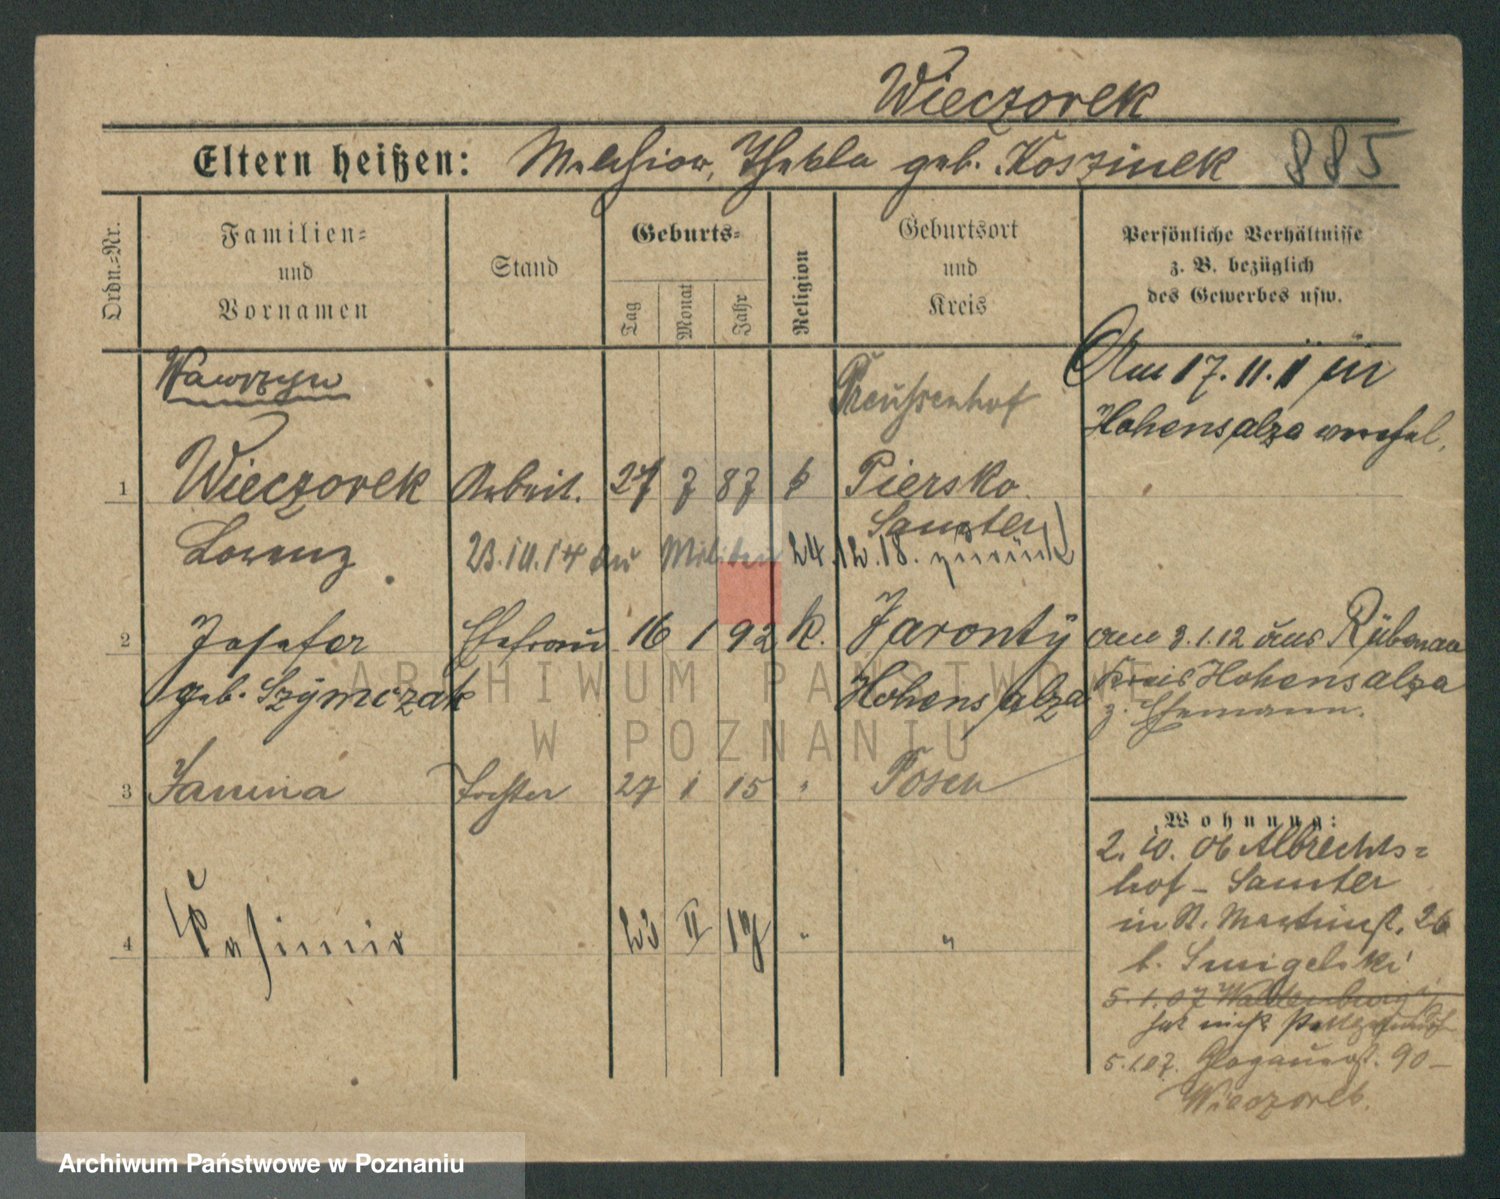 Wieczorek
Eltern heißen: Melchior, Thekla geb. Koszinek 885
Ordn.=Nr.
Familien=
und
Vornamen
Stand
Geburts=
Tag
Monat
Jahr
Religion
Geburtsort
und
Kreis
Persönliche Verhältnisse
z. B. bezüglich
des Gewerbes usw.
Wawrzyn
Preußenhof
Am 17. 11. 11 in
Hohensalza verehel.
1 Wieczorek Arbeit. 27 7 87 k Piersko
Lorenz Samter
23.10.14 zu Militär 24.12.18. zurück
2 Josefa Ehefrau 16 1 92 k. Jaronty
geb. Szÿmczak Hohensalza
am 3.1.12 aus Rübenau
Kreis Hohensalza
z. Ehemann.
3 Janina Tochter 27 1 15 " Posen
4 Kasimir 23 II 17 " "
Wohnung:
2. 10. 06 Albrechts=
hof - Samter
in St. Martinst. 26
b. Smigelski
5.1.07 Waldenburg
hat nicht stattgefunden
5.1.07. Glogauerst. 90 -
Wieczorek.
ARCHIWUM PAŃSTWOWE
W POZNANIU
Archiwum Państwowe w Poznaniu